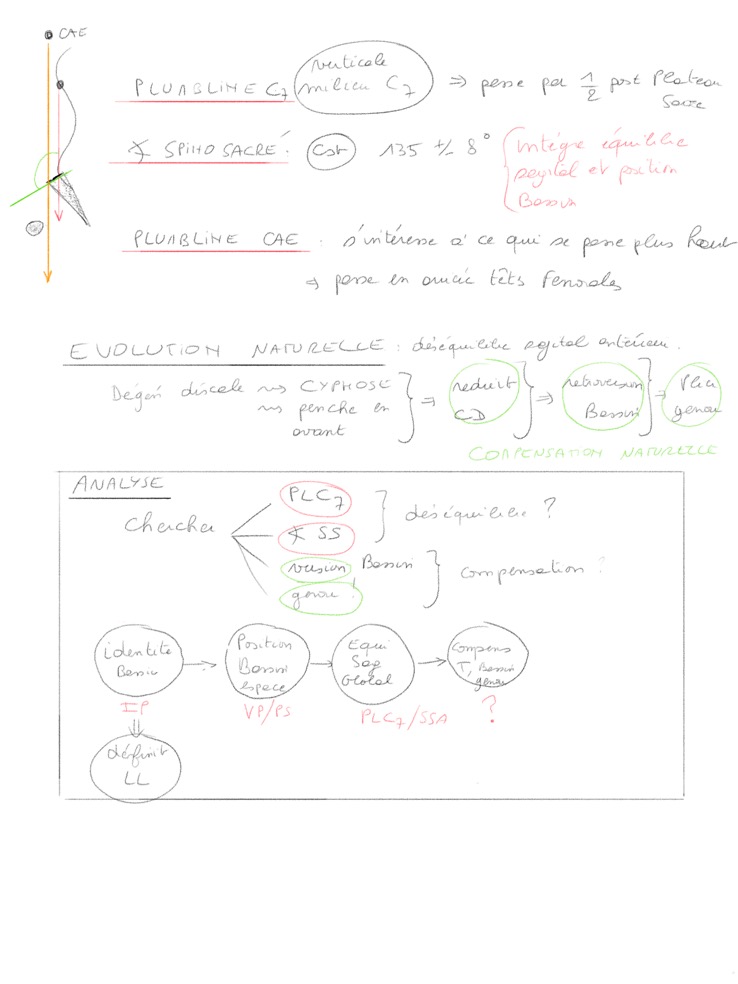 CAE
PLUMBLINE C7 verticale milieu C7 ⇒ passe par 1/2 post Plateau Sacré
∢ SPINO SACRÉ : Cst 135 +/- 8° Intègre équilibre
sagital et position
Bassin
PLUMBLINE CAE : s'intéresse à ce qui se passe plus haut
→ passe en arrière têts Fémorales
EVOLUTION NATURELLE : déséquilibre sagital antérieur.
Dégén discale ⇝ CYPHOSE
⇝ penche en
avant
⇒ reduit
CD
⇒ retroversion
Bassin
⇒ Plie
genou
COMPENSATION NATURELLE
ANALYSE
Chercher
PLC7
∢ SS
déséquilibre ?
version Bassin
genou !
compensation ?
identité
Bassin
→ Position
Bassin
espace
→ Equi
Sag
Global
→ Compens
T, Bassin
genou
IP
VP/PS
PLC7/SSA
?
⇓
définit
LL